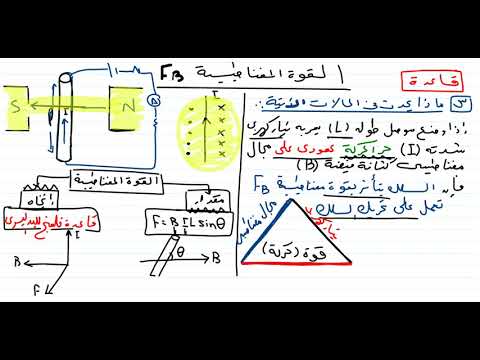 القوة المغناطيسية FB
قاعدة
S
N
I
A
I
س ماذا يحدث في الحالات الآتية:
إذا وضع موصل طوله (L) يمر به تيار كهربي
شدته (I) حر الحركة عمودى على مجال
مغناطيسى كثافة فيضه (B)
فإن السلك يتأثر بقوة مغناطيسية FB
تعمل على تحريك السلك
القوة المغناطيسية
اتجاه
مقدار
قاعدة فلمنج لليد اليسرى
F = B I L sin θ
I
B
F
θ
B
مجال مغناطيسى
تيار
قوة (حركة)